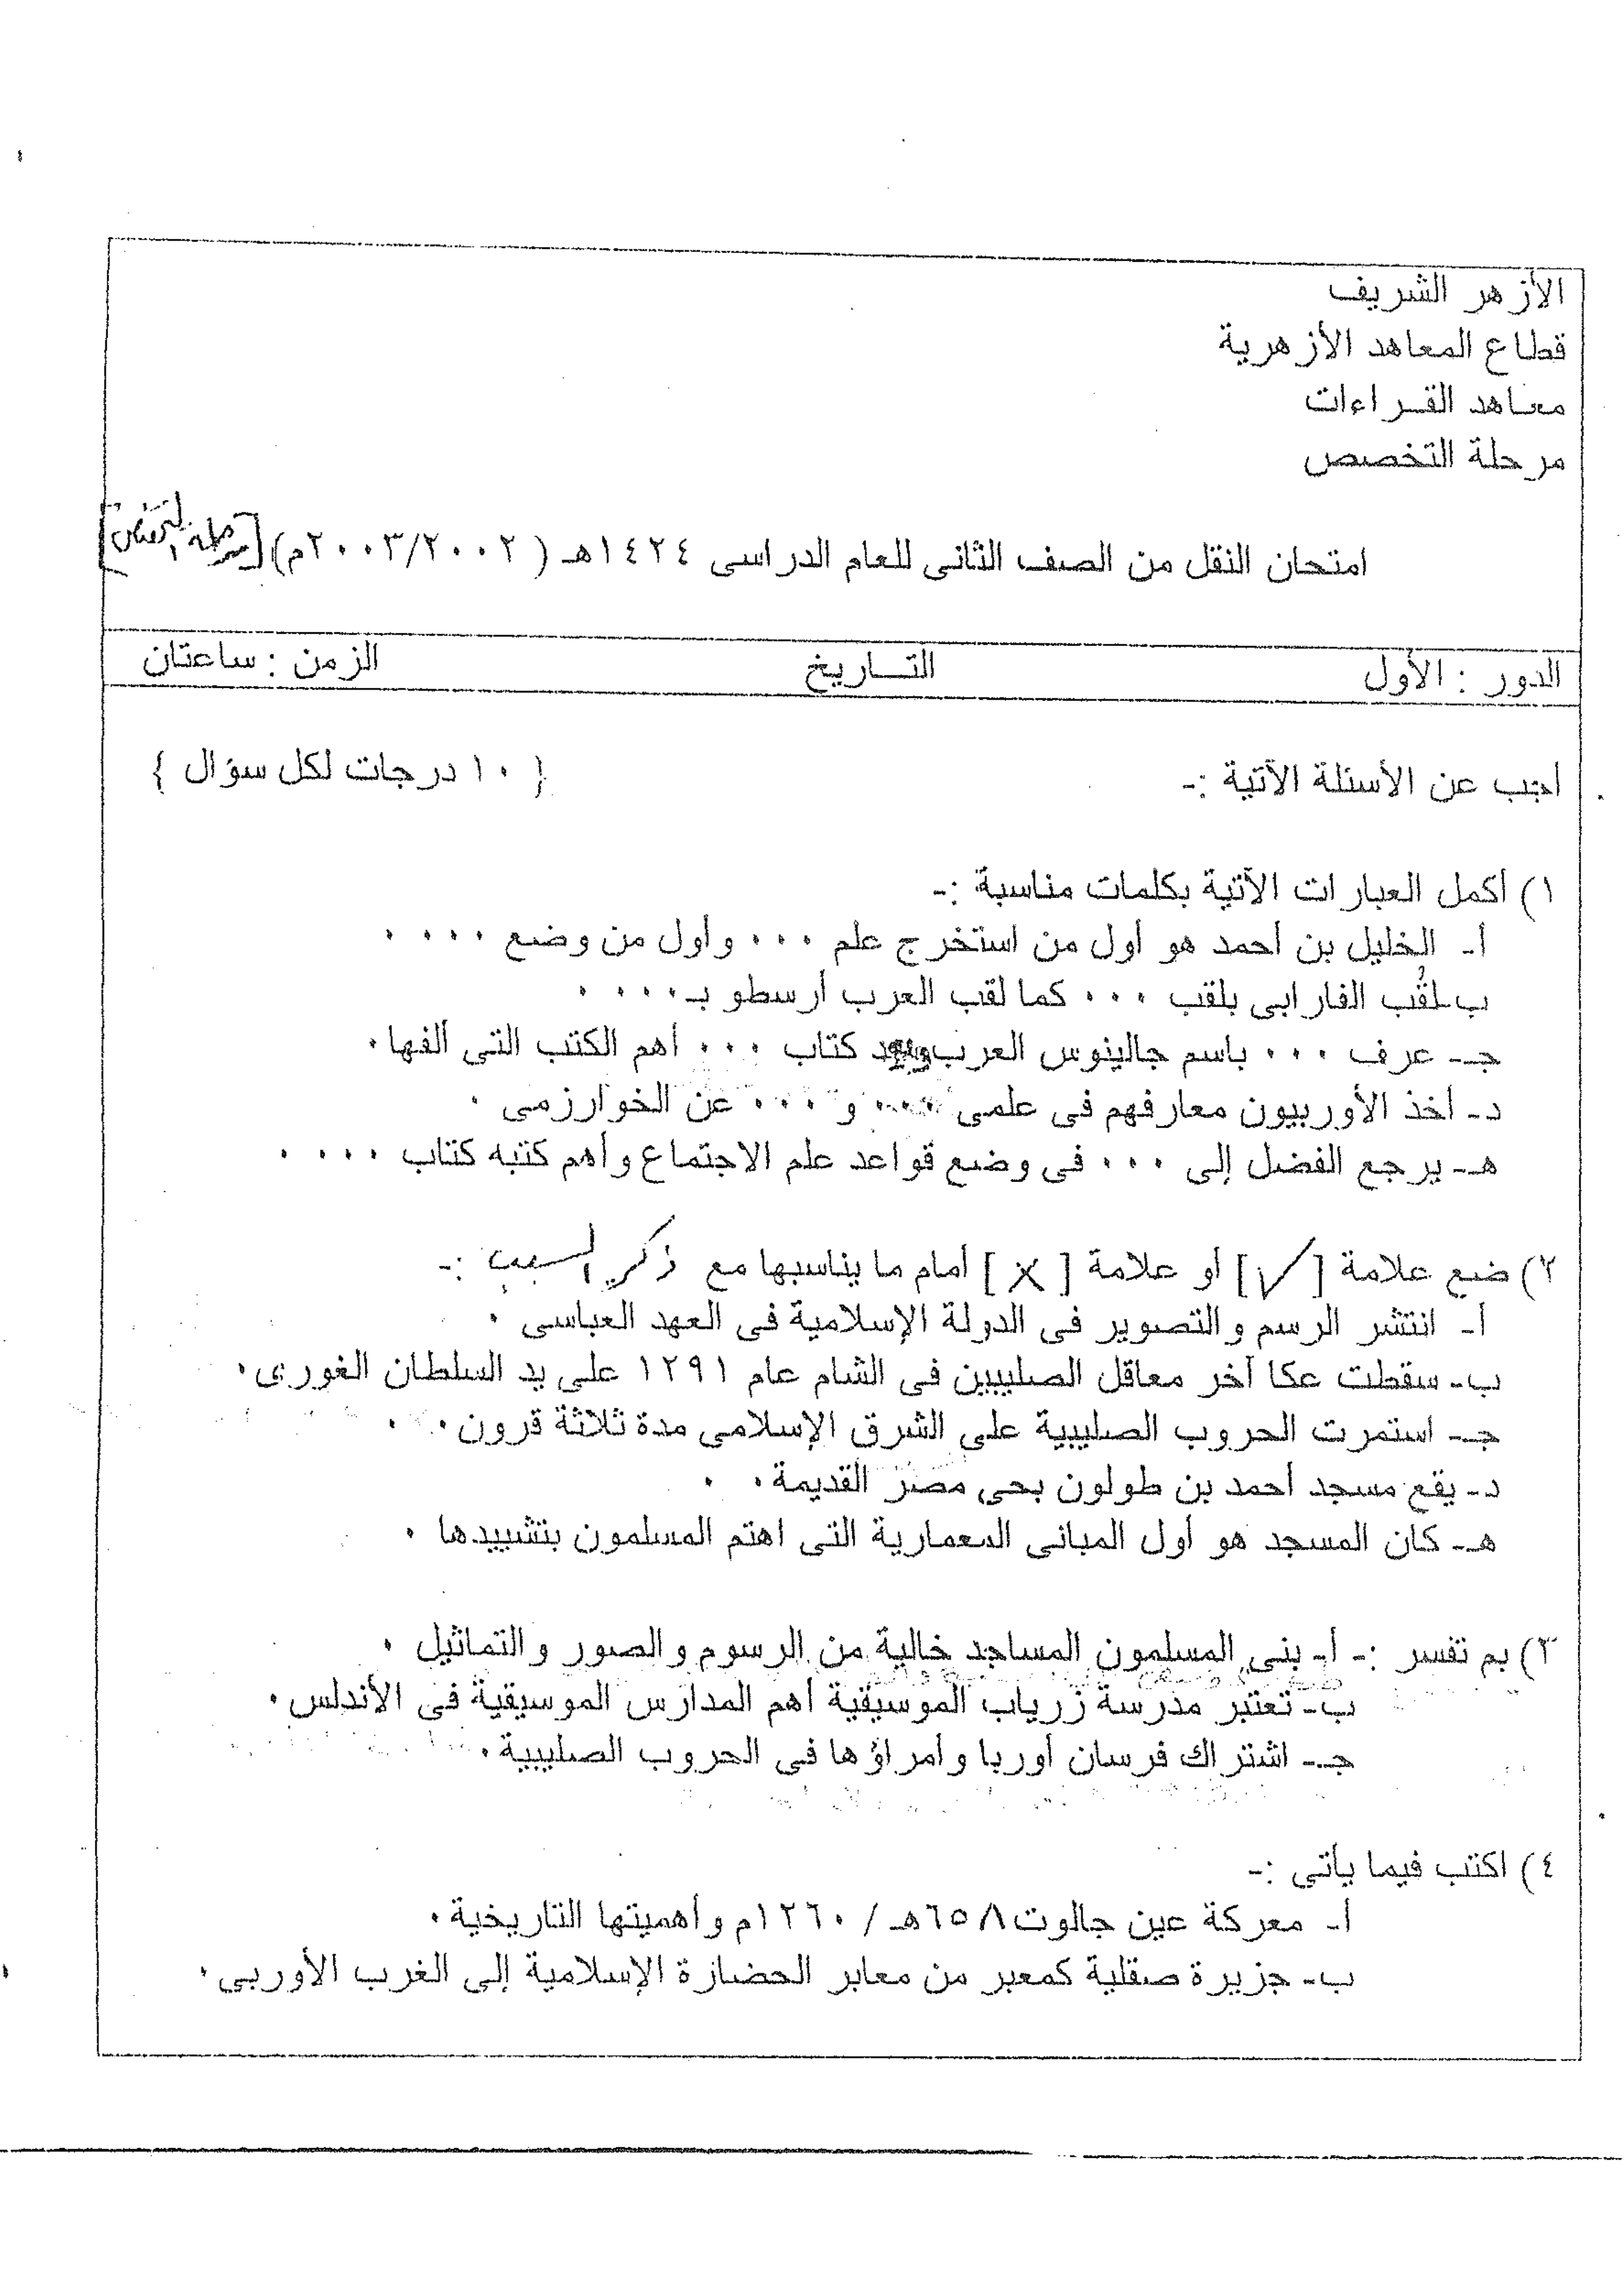 الأزهر الشريف
قطاع المعاهد الأزهرية
معاهد القراءات
مرحلة التخصص
امتحان النقل من الصف الثانى للعام الدراسى ١٤٢٤هـ ( ٢٠٠٣/٢٠٠٢م) [مرحلة التخصص]
الدور : الأول التاريخ الزمن : ساعتان
أجب عن الأسئلة الآتية :- { ١٠ درجات لكل سؤال }
١) أكمل العبارات الآتية بكلمات مناسبة :-
أ- الخليل بن أحمد هو أول من استخرج علم ... وأول من وضع ....
ب- لقُب الفارابى بلقب ... كما لقب العرب أرسطو بـ....
جـ- عرف ... باسم جالينوس العرب ويعد كتاب ... أهم الكتب التى ألفها.
د- أخذ الأوربيون معارفهم فى علمى ... و ... عن الخوارزمى .
هـ- يرجع الفضل إلى ... فى وضع قواعد علم الاجتماع وأهم كتبه كتاب ....
٢) ضع علامة [✓] أو علامة [×] أمام ما يناسبها مع ذكر السبب :-
أ- انتشر الرسم والتصوير فى الدولة الإسلامية فى العهد العباسى .
ب- سقطت عكا آخر معاقل الصليبيين فى الشام عام ١٢٩١ على يد السلطان الغورى.
جـ- استمرت الحروب الصليبية على الشرق الإسلامى مدة ثلاثة قرون.
د- يقع مسجد أحمد بن طولون بحى مصر القديمة.
هـ- كان المسجد هو أول المبانى المعمارية التى اهتم المسلمون بتشييدها .
٣) بم تفسر :- أ- بنى المسلمون المساجد خالية من الرسوم والصور والتماثيل .
ب- تعتبر مدرسة زرياب الموسيقية أهم المدارس الموسيقية فى الأندلس.
جـ- اشتراك فرسان أوربا وأمراؤها فى الحروب الصليبية.
٤) اكتب فيما يأتى :-
أ- معركة عين جالوت ٦٥٨هـ / ١٢٦٠م وأهميتها التاريخية.
ب- جزيرة صقلية كمعبر من معابر الحضارة الإسلامية إلى الغرب الأوربى.